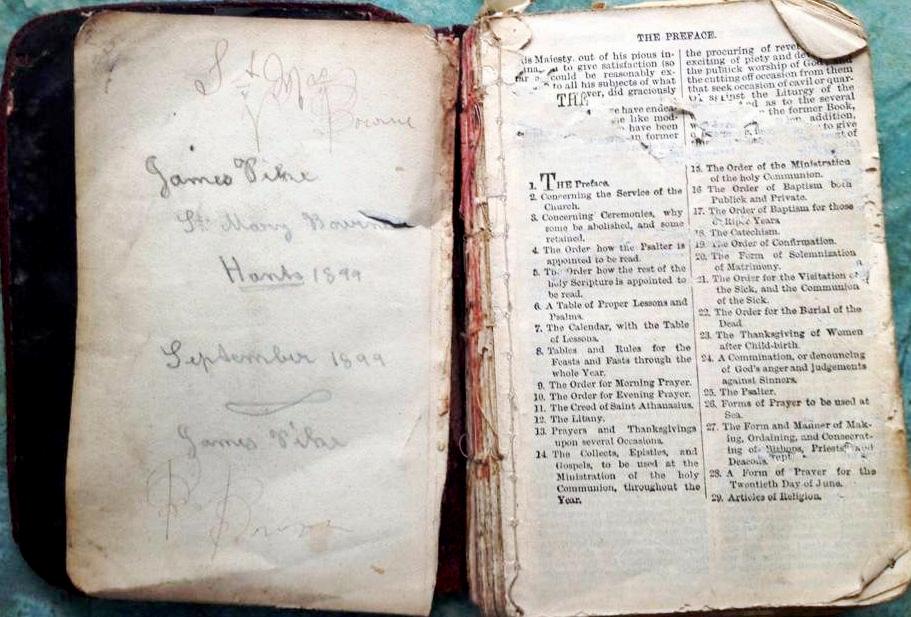 St Mary
Bourne
James Pike
St. Mary Bourne
Hants 1899
September 1899
James Pike
THE PREFACE.
his Majesty, out of his pious in-
to give satisfaction (so
could be reasonably ex-
to all his subjects of what
did graciously
THE
we have endea-
like mod-
have been
former
the procuring of
exciting of piety and
the publick worship of God; and
the cutting off occasion from them
that seek occasion of cavil or quar-
against the Liturgy of the
as to the several
the former Book,
addition,
to give
of
1. THE Preface.
2. Concerning the Service of the
Church.
3. Concerning Ceremonies, why
some be abolished, and some
retained.
4. The Order how the Psalter is
appointed to be read.
5. The Order how the rest of the
holy Scripture is appointed to
be read.
6. A Table of Proper Lessons and
Psalms.
7. The Calendar, with the Table
of Lessons.
8. Tables and Rules for the
Feasts and Fasts through the
whole Year.
9. The Order for Morning Prayer.
10. The Order for Evening Prayer.
11. The Creed of Saint Athanasius.
12. The Litany.
13. Prayers and Thanksgivings
upon several Occasions.
14. The Collects, Epistles, and
Gospels, to be used at the
Ministration of the holy
Communion, throughout the
Year.
15. The Order of the Ministration
of the holy Communion.
16 The Order of Baptism both
Publick and Private.
17. The Order of Baptism for those
of Riper Years
18. The Catechism.
19. The Order of Confirmation.
20. The Form of Solemnization
of Matrimony.
21. The Order for the Visitation of
the Sick, and the Communion
of the Sick.
22. The Order for the Burial of the
Dead.
23. The Thanksgiving of Women
after Child-birth.
24. A Commination, or denouncing
of God's anger and judgements
against Sinners.
25. The Psalter.
26. Forms of Prayer to be used at
Sea.
27. The Form and Manner of Mak-
ing, Ordaining, and Consecrat-
ing of Bishops, Priests, and
Deacons.
28. A Form of Prayer for the
Twentieth Day of June.
29. Articles of Religion.